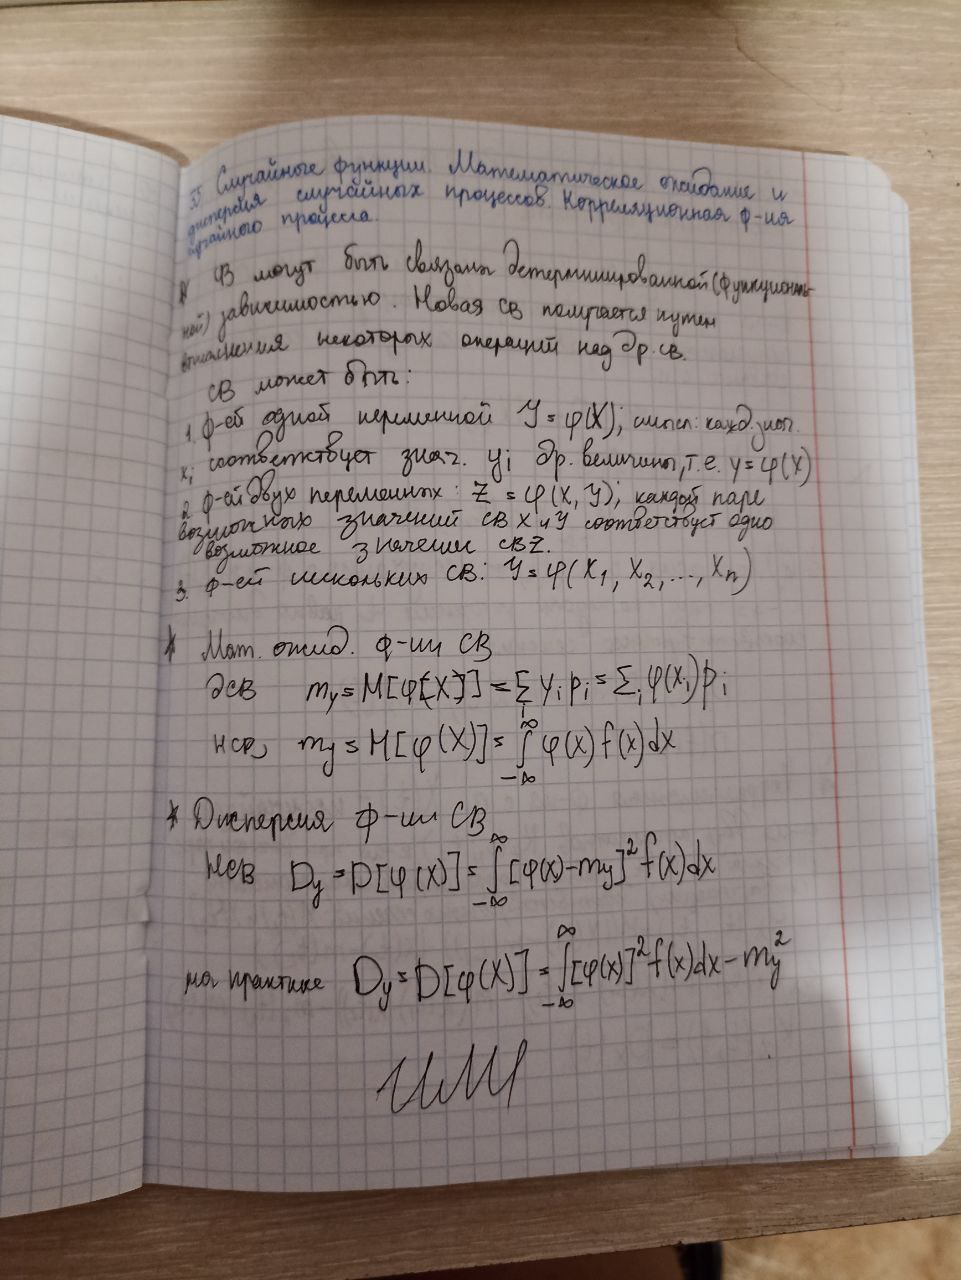 Случайные функции. Математическое ожидание и
дисперсия случайных процессов. Корреляционная ф-ия
случайного процесса.
СВ могут быть связаны детерминированной (функциональ-
ной) зависимостью. Новая СВ получается путем
выполнения некоторых операций над др. св.
СВ может быть:
1. ф-ей одной переменной Y = φ(X); смысл: кажд. знач.
xi соответствует знач. yi др. величины, т.е. y = φ(x)
2 ф-ей двух переменных: Z = φ(X, Y); каждой паре
возможных значений СВ X и Y соответствует одно
возможное значение СВ Z.
3. ф-ей нескольких СВ: Y = φ(X1, X2, ..., Xn)
* Мат. ожид. ф-ии СВ
ДСВ my = M[φ(X)] = Σi yi pi = Σi φ(xi) pi
НСВ my = M[φ(X)] = ∫_{-∞}^{∞} φ(x) f(x) dx
* Дисперсия ф-ии СВ
НСВ Dy = D[φ(X)] = ∫_{-∞}^{∞} [φ(x) - my]² f(x) dx
на практике Dy = D[φ(X)] = ∫_{-∞}^{∞} [φ(x)]² f(x) dx - my²